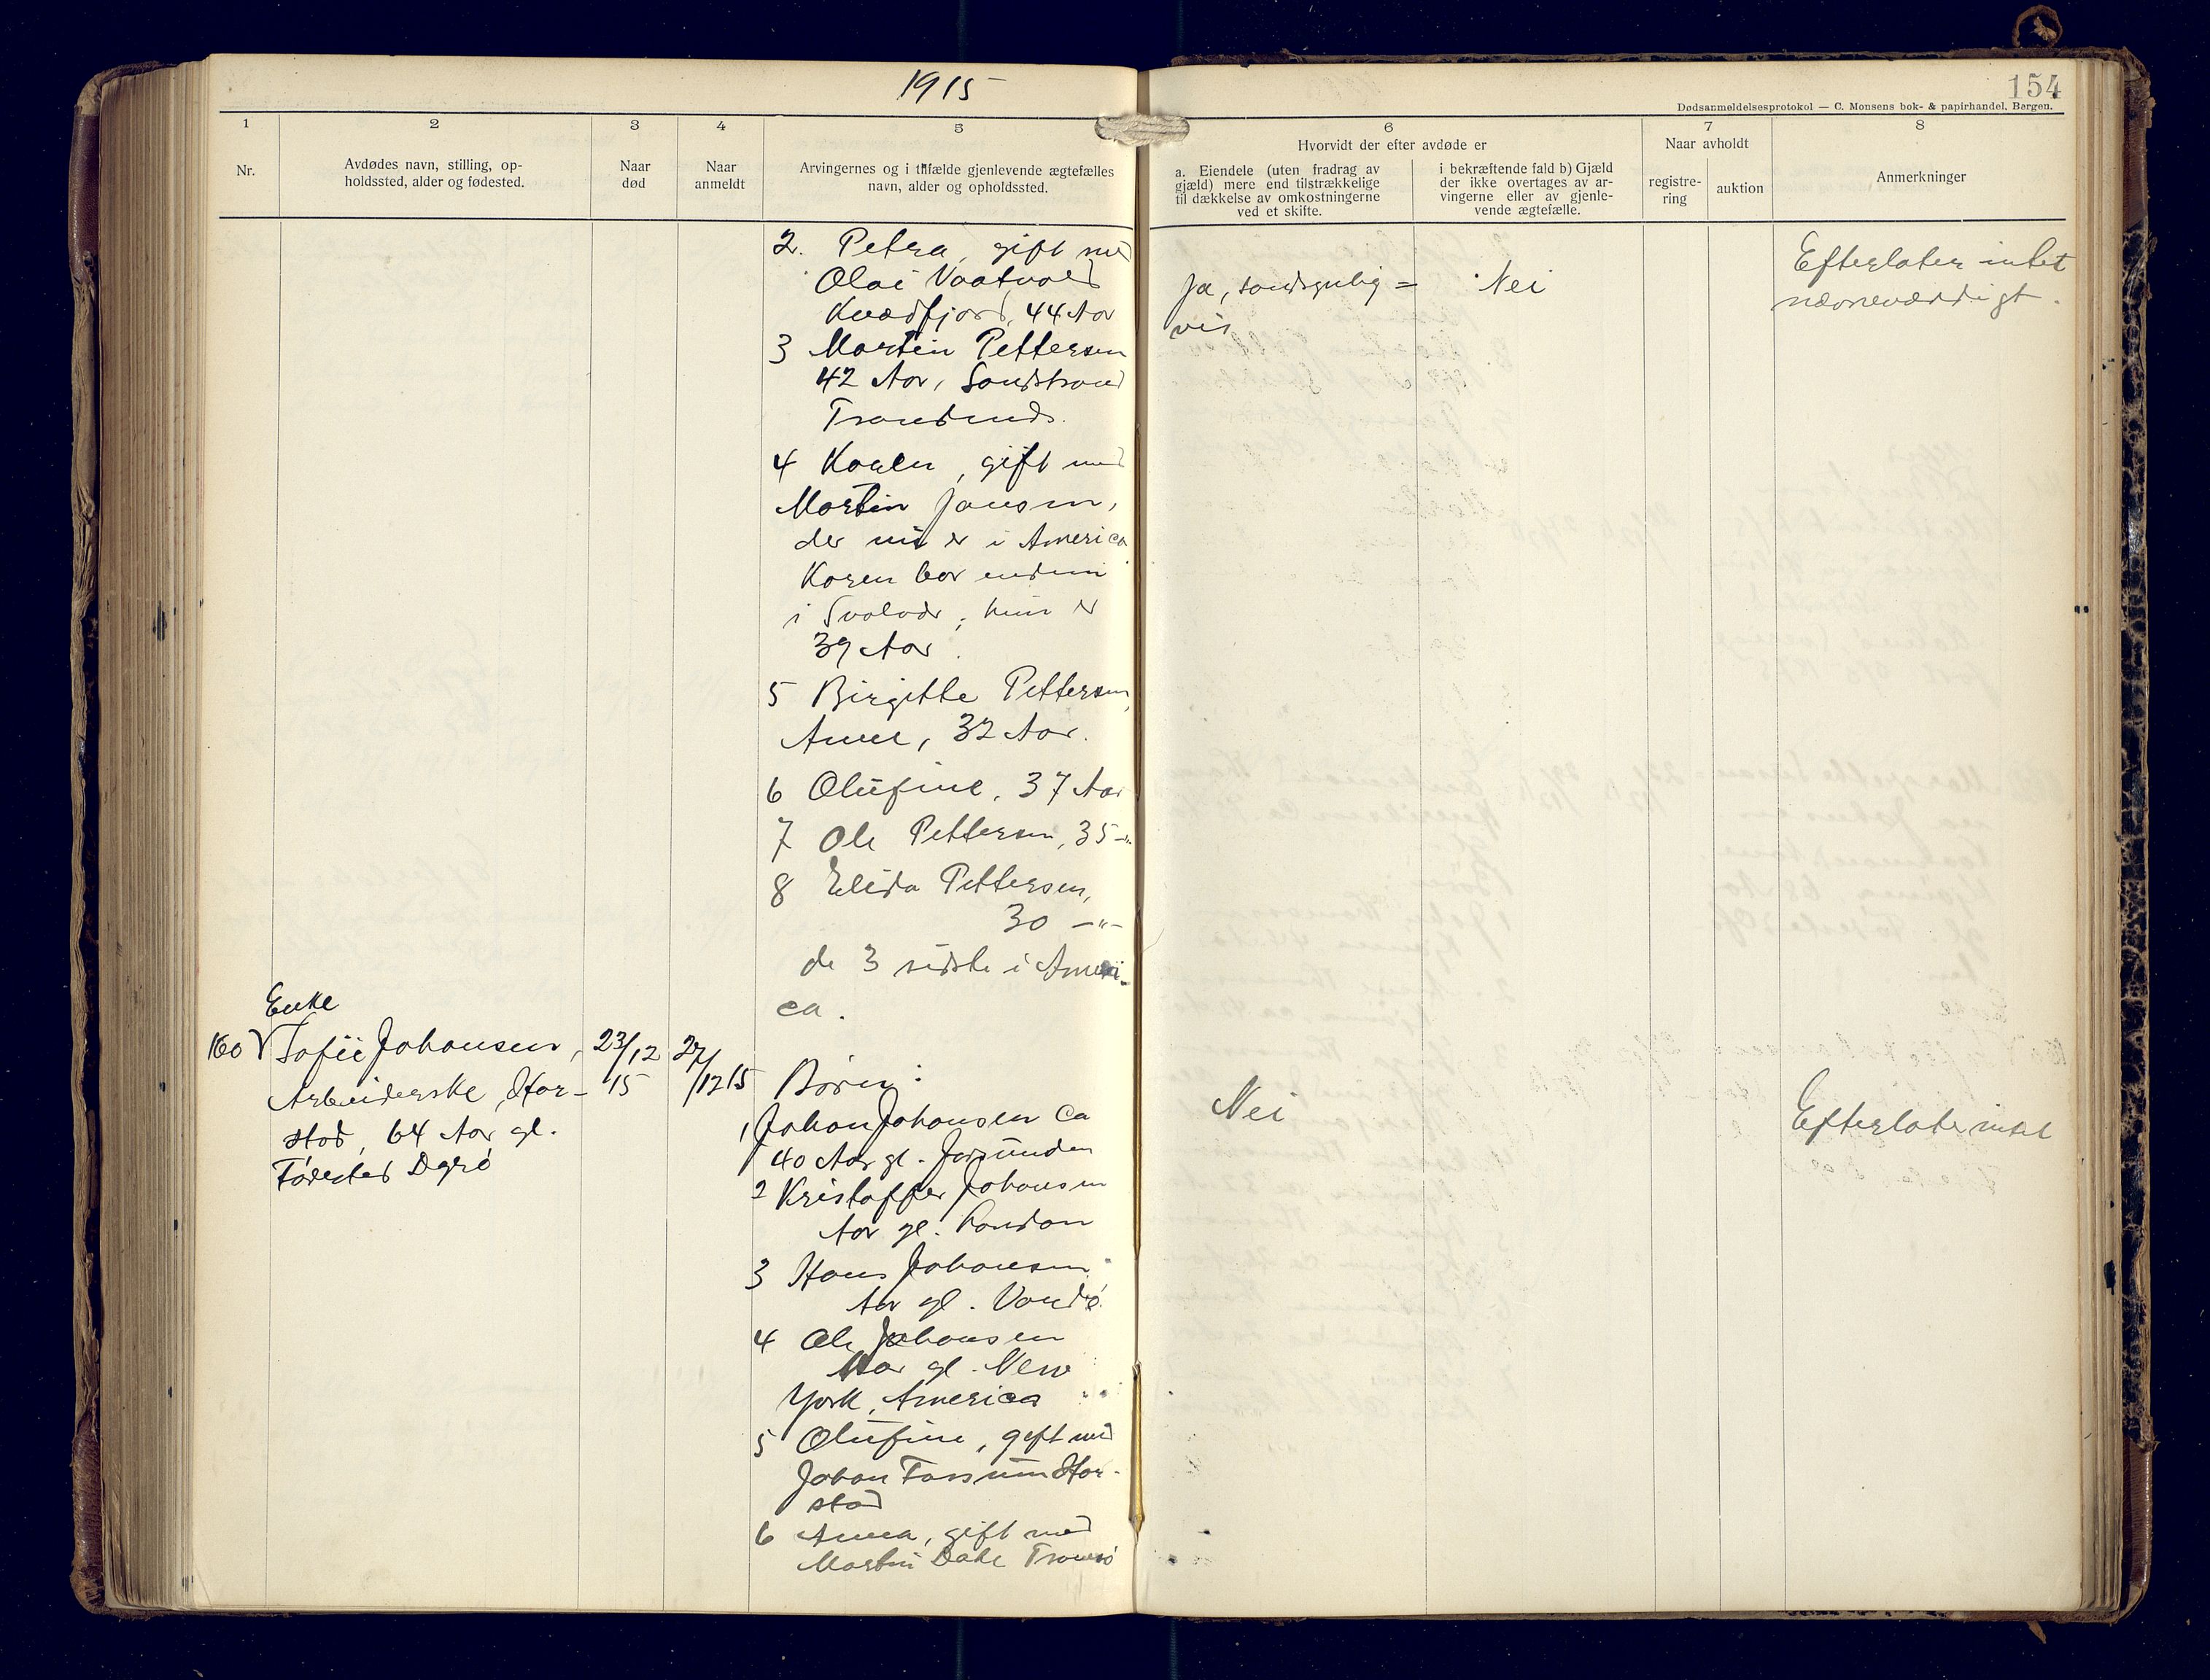 1915
154
Dødsanmeldelsesprotokol — C. Monsens bok- & papirhandel, Bergen.
1
2
3
4
5
6
7
8
Nr.
Avdødes navn, stilling, op-
holdssted, alder og fødested.
Naar
død
Naar
anmeldt
Arvingernes og i tilfælde gjenlevende ægtefælles
navn, alder og opholdssted.
Hvorvidt der efter avdøde er
a. Eiendele (uten fradrag av
gjæld) mere end tilstrækkelige
til dækkelse av omkostningerne
ved et skifte.
i bekræftende fald b) Gjæld
der ikke overtages av ar-
vingerne eller av gjenle-
vende ægtefælle.
Naar avholdt
registre-
ring
auktion
Anmerkninger
2. Petra, gift med
Olai Vaatvold
Kvædfjord, 44 Aar
3 Martin Pettersen
42 Aar, Sandstrand
Trondenes.
4 Karen, gift med
Martin Jansen,
der nu er i America
Karen bor endnu
i Svolvær, hun er
39 Aar.
5 Birgitte Pettersen,
32 Aar.
6 Olufine, 37 Aar
7 Ole Pettersen, 35 -"-
8 Elida Pettersen,
30 -"-
de 3 sidste i Ameri-
ca.
Ja, sandsynlig=
vis
Nei
Efterlater intet
nævneværdigt.
Enke
160 Sofie Johansen,
Arbeiderske, Har-
stad, 64 Aar gl.
Fødested Dyrø
23/12
15
27/12 15
Børn:
1 Johan Johansen ca
40 Aar gl.
2 Kristoffer Johansen
Aar gl. London
3 Hans Johansen
Aar gl. Vardø
4 Ole Johansen
Aar gl. New
York, America
5 Olufine, gift med
Johan Fossum Har-
stad
6 Anna, gift med
Martin Dahl Tromsø
Nei
Efterlater intet